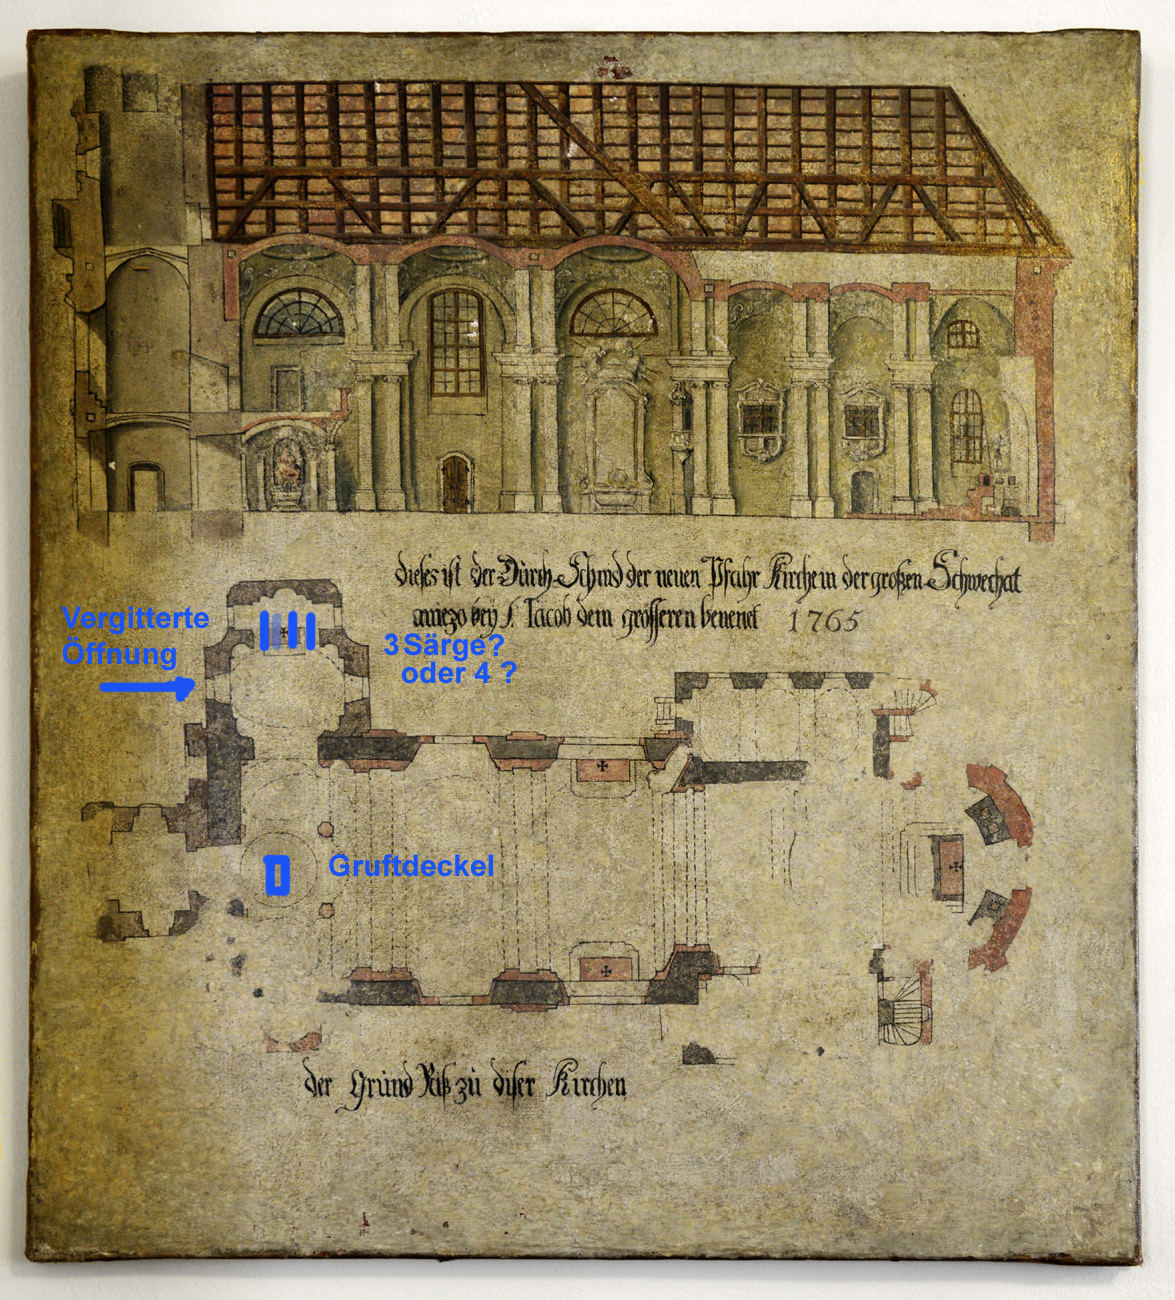 dieses ist der Dürch Schnid der neuen Pfahr Kirche in der großen Schwechat
aniezo beÿ S. Iacob dem grösseren benenet 1765
Vergitterte
Öffnung
3 Särge?
oder 4 ?
Gruftdeckel
der Gründ Riß zü diser Kirchen